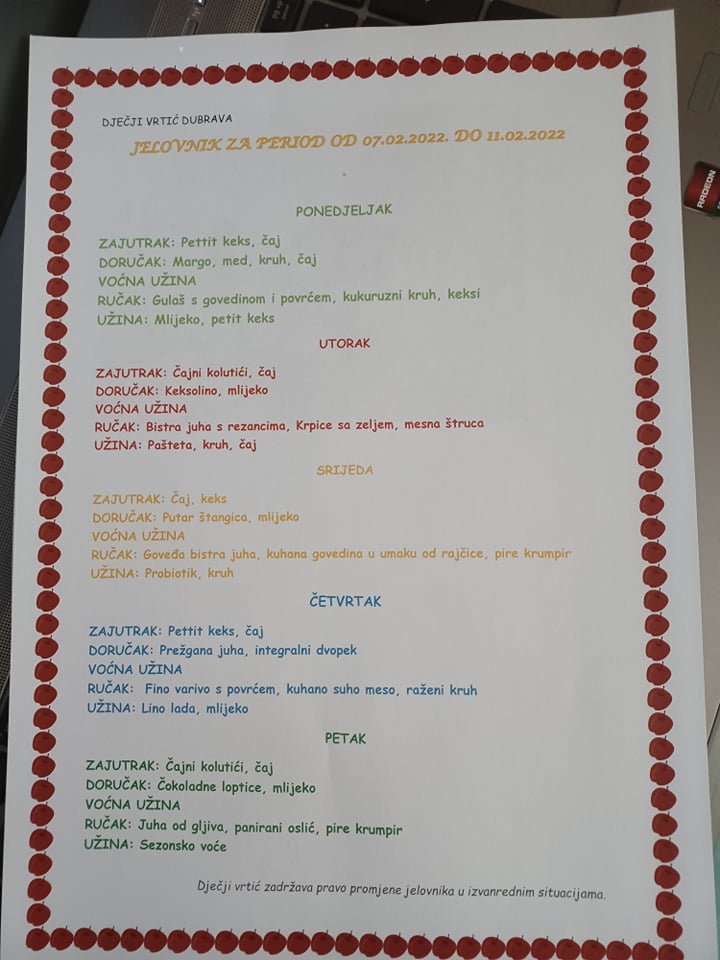 pg up
RADEON
DJEČJI VRTIĆ DUBRAVA
JELOVNIK ZA PERIOD OD 07.02.2022. DO 11.02.2022
PONEDJELJAK
ZAJUTRAK: Pettit keks, čaj
DORUČAK: Margo, med, kruh, čaj
VOĆNA UŽINA
RUČAK: Gulaš s govedinom i povrćem, kukuruzni kruh, keksi
UŽINA: Mlijeko, petit keks
UTORAK
ZAJUTRAK: Čajni kolutići, čaj
DORUČAK: Keksolino, mlijeko
VOĆNA UŽINA
RUČAK: Bistra juha s rezancima, Krpice sa zeljem, mesna štruca
UŽINA: Pašteta, kruh, čaj
SRIJEDA
ZAJUTRAK: Čaj, keks
DORUČAK: Putar štangica, mlijeko
VOĆNA UŽINA
RUČAK: Goveđa bistra juha, kuhana govedina u umaku od rajčice, pire krumpir
UŽINA: Probiotik, kruh
ČETVRTAK
ZAJUTRAK: Pettit keks, čaj
DORUČAK: Prežgana juha, integralni dvopek
VOĆNA UŽINA
RUČAK: Fino varivo s povrćem, kuhano suho meso, raženi kruh
UŽINA: Lino lada, mlijeko
PETAK
ZAJUTRAK: Čajni kolutići, čaj
DORUČAK: Čokoladne loptice, mlijeko
VOĆNA UŽINA
RUČAK: Juha od gljiva, panirani oslić, pire krumpir
UŽINA: Sezonsko voće
Dječji vrtić zadržava pravo promjene jelovnika u izvanrednim situacijama.